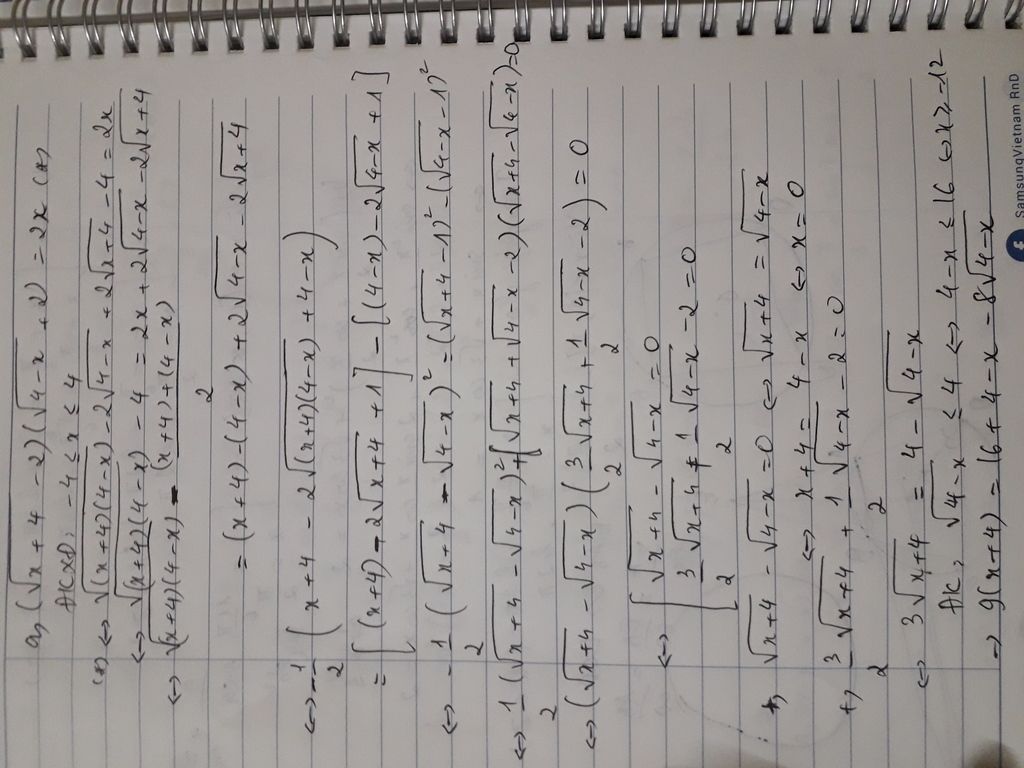 a, (√x+4 - 2)(√4-x + 2) = 2x (*)
ĐKXĐ: -4 ≤ x ≤ 4
(*) ⇔ √(x+4)(4-x) - 2√4-x + 2√x+4 - 4 = 2x
⇔ √(x+4)(4-x) - 4 = 2x + 2√4-x - 2√x+4
⇔ √(x+4)(4-x) - (x+4)+(4-x)/2
= (x+4)-(4-x) + 2√4-x - 2√x+4
⇔ -1/2 (x+4 - 2√(x+4)(4-x) + 4-x)
= [(x+4) - 2√x+4 + 1] - [(4-x) - 2√4-x + 1]
⇔ -1/2 (√x+4 - √4-x)² = (√x+4 - 1)² - (√4-x - 1)²
⇔ 1/2 (√x+4 - √4-x)² + (√x+4 + √4-x - 2)(√x+4 - √4-x) = 0
⇔ (√x+4 - √4-x)(3/2 √x+4 + 1/2 √4-x - 2) = 0
⇔ [ √x+4 - √4-x = 0
3/2 √x+4 + 1/2 √4-x - 2 = 0
+, √x+4 - √4-x = 0 ⇔ √x+4 = √4-x
⇔ x+4 = 4-x ⇔ x = 0
+, 3/2 √x+4 + 1/2 √4-x - 2 = 0
⇔ 3√x+4 = 4 - √4-x
ĐK, √4-x ≤ 4 ⇔ 4-x ≤ 16 ⇔ x ≥ -12
→ 9(x+4) = 16 + 4-x - 8√4-x
SamsungVietnam RnD